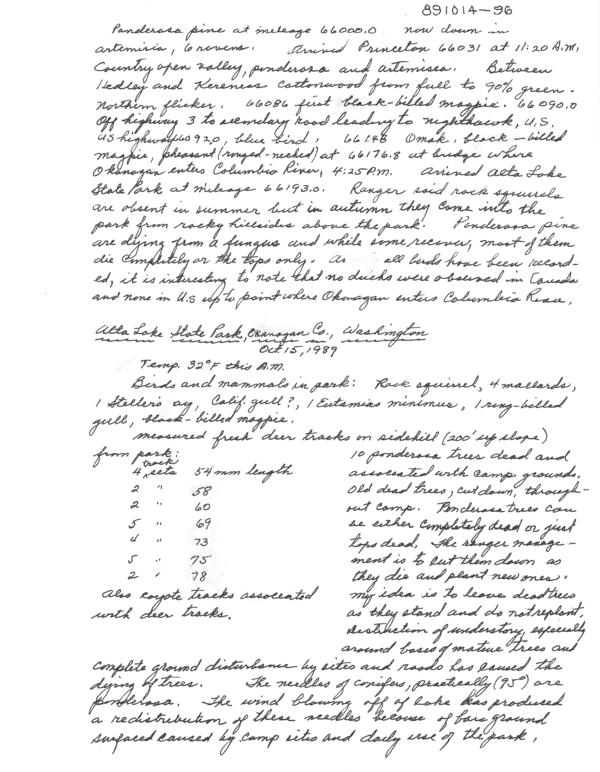 891014-96
Ponderosa pine at mileage 66000.0 now down in
artemisia, 6 ravens. Arrived Princeton 66031 at 11:20 A.M.
Country open valley, ponderosa and artemisea. Between
Hedley and Keremeos cottonwood from full to 90% green.
northern flicker. 66086 first black-billed magpie. 66090.0
Off highway 3 to secondary road leading to nighthawk, U.S.
US highway 66092.0, blue bird, 66148 Omak, black-billed
magpie, pheasant (ringed-necked) at 66176.8 at bridge where
Okanagan enters Columbia River, 4:25 P.M. arrived Alta Lake
State Park at mileage 66193.0. Ranger said rock squirrels
are absent in summer but in autumn they come into the
park from rocky hillsides above the park. Ponderosa pine
are dying from a fungus and while some recover, most of them
die completely or the tops only. As all birds have been record-
ed, it is interesting to note that no ducks were observed in Canada
and none in U.S up to point where Okanogan enters Columbia River.
Alta Lake State Park, Okanogan Co., Washington
Oct. 15, 1989
Temp. 32°F this A.M.
Birds and mammals in park: Rock squirrel, 4 mallards,
1 Steller's jay, Calif. gull?, 1 Eutamias minimus, 1 ring-billed
gull, black-billed magpie.
measured fresh deer tracks on sidehill (200' up slope)
from park:
4 track sets 54 mm length
2 " 58
2 " 60
5 " 69
4 " 73
5 " 75
2 " 78
Also coyote tracks associated
with deer tracks.
10 ponderosa trees dead and
associated with camp grounds.
Old dead trees, cut down, through-
out camp. Ponderosa trees can
be either completely dead or just
tops dead. The ranger manage-
ment is to cut them down as
they die and plant new ones.
my idea is to leave dead trees
as they stand and do not replant.
Destruction of understory, especially
around bases of mature trees and
complete ground disturbance by sites and roads has caused the
dying of trees. The needles of conifers, practically (95%) are
ponderosa. The wind blowing off of lake has produced
a redistribution of these needles because of bare ground
surfaced caused by camp sites and daily use of the park.